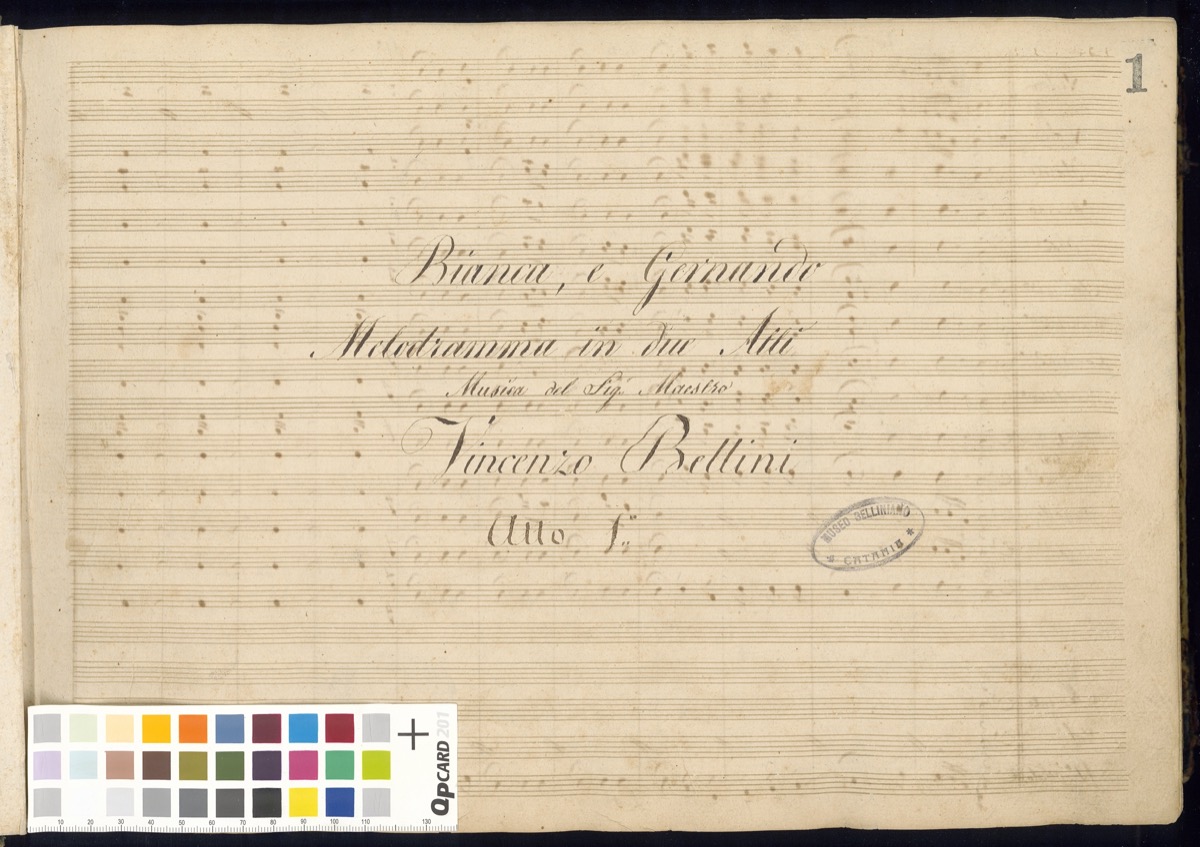 1
Bianca, e Gernando
Melodramma in due Atti
Musica del Sig.r Maestro
Vincenzo Bellini
Atto 1.o
MUSEO BELLINIANO
* CATANIA *
QPCARD 201
10 20 30 40 50 60 70 80 90 100 110 130